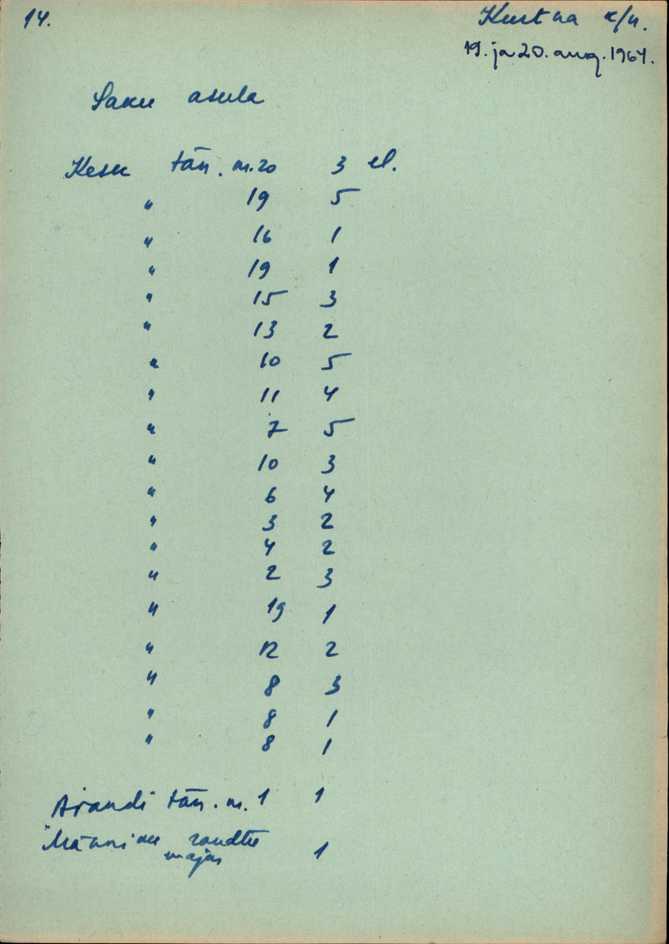 14.
Kurtna k/n.
19. ja 20. aug. 1964.
Saku asula
Kesk tän. m. 20 3 el.
" 19 5
" 16 1
" 19 1
" 15 3
" 13 2
" 10 5
" 11 4
" 7 5
" 10 3
" 6 4
" 3 2
" 4 2
" 2 3
" 19 1
" 12 2
" 8 3
" 8 1
" 8 1
tän. m. 1 1
Männiku raudtee
majas 1